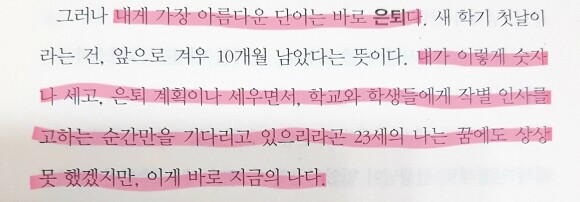 그러나 내게 가장 아름다운 단어는 바로 은퇴다. 새 학기 첫날이
라는 건, 앞으로 겨우 10개월 남았다는 뜻이다. 내가 이렇게 숫자
나 세고, 은퇴 계획이나 세우면서, 학교와 학생들에게 작별 인사를
고하는 순간만을 기다리고 있으리라곤 23세의 나는 꿈에도 상상
못 했겠지만, 이게 바로 지금의 나다.